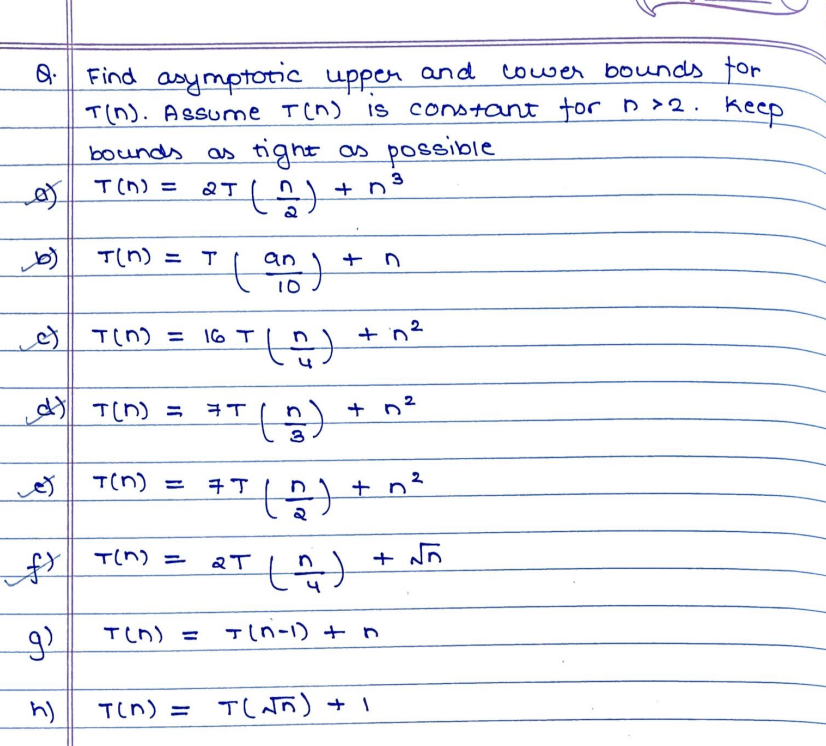 Q. Find asymptotic upper and lower bounds for
T(n). Assume T(n) is constant for n > 2. Keep
bounds as tight as possible
a) T(n) = 2T (n/2) + n³
b) T(n) = T (9n/10) + n
c) T(n) = 16 T (n/4) + n²
d) T(n) = 7T (n/3) + n²
e) T(n) = 7T (n/2) + n²
f) T(n) = 2T (n/4) + √n
g) T(n) = T(n-1) + n
h) T(n) = T(√n) + 1